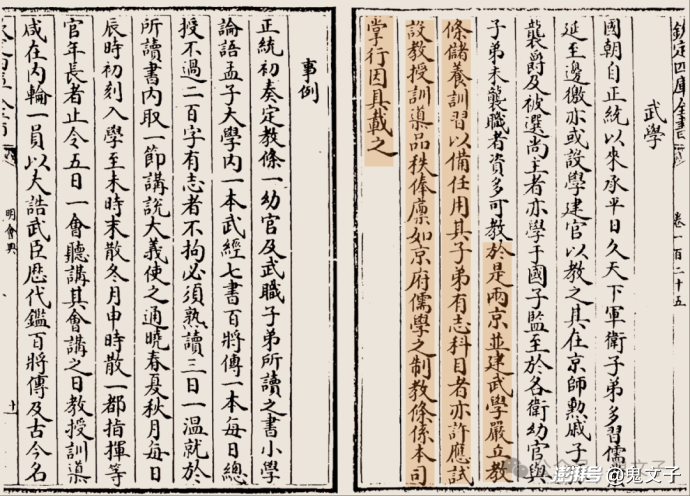 欽定四庫全書
卷一百二十五
武學
國朝自正統以來承平日久天下軍衛子弟多習儒
延至邊徼亦或設學建官以教之其在京師勲戚子
襲爵及被選尚主者亦學于國子監至於各衛幼官與
子弟未襲職者資多可教於是兩京並建武學嚴立教
條儲養訓習以備任用其子弟有志科目者亦許應試
設教授訓導品秩俸廩如京府儒學之制教條係本司
掌行因具載之
事例
正統初奏定教條一幼官及武職子弟所讀之書小學
論語孟子大學內一本武經七書百將傳一本每日總
授不過二百字有志者不拘必須熟讀三日一温就於
所讀書內取一節講說大義使之通曉春夏秋月每日
辰時初刻入學至未時末散冬月申時散一都指揮等
官年長者止令五日一會聽講其會講之日教授訓導
咸在內輪一員以大誥武臣歷代鑑百將傳及古今名
明會典
十
澎湃号@鬼文子